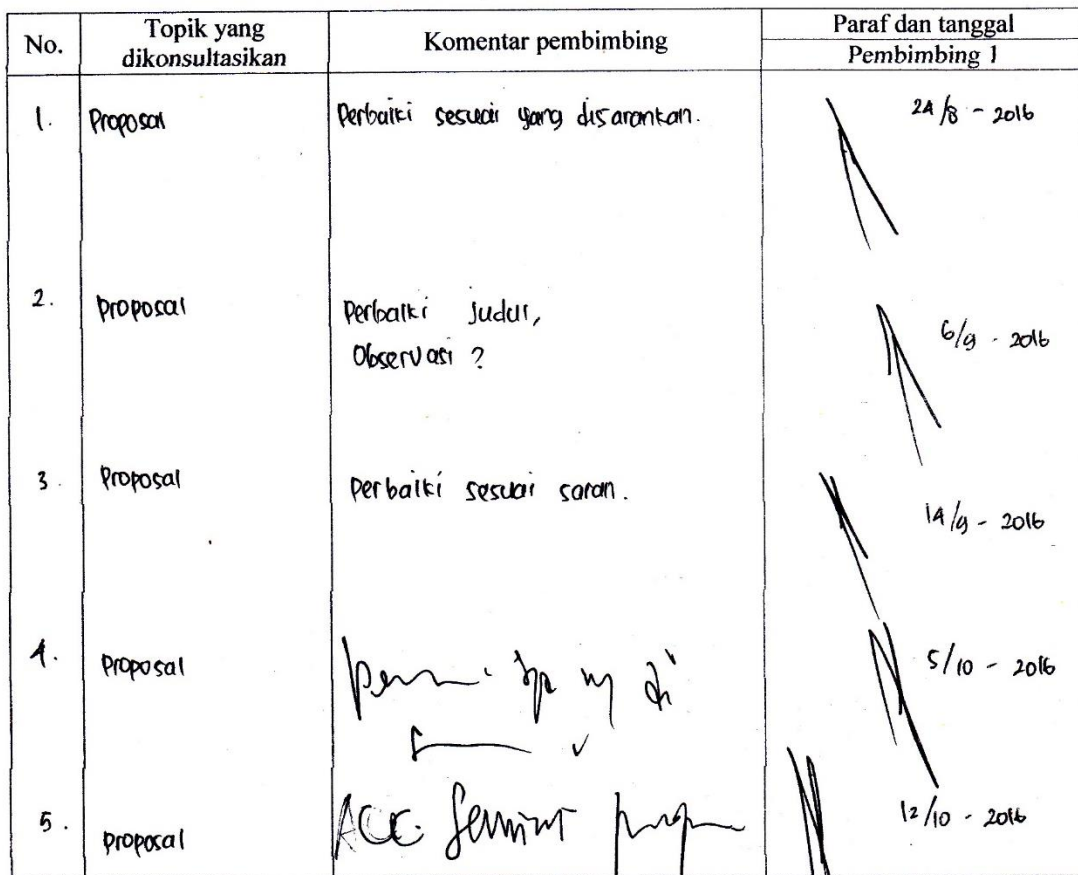 No.
Topik yang
dikonsultasikan
Komentar pembimbing
Paraf dan tanggal
Pembimbing 1
1. Proposal Perbaiki sesuai yang disarankan. 24/8 - 2016
2. Proposal Perbaiki judul, 6/9 - 2016
Observasi ?
3. Proposal Perbaiki sesuai saran. 14/9 - 2016
4. Proposal 5/10 - 2016
5. Proposal ACC Seminar 12/10 - 2016